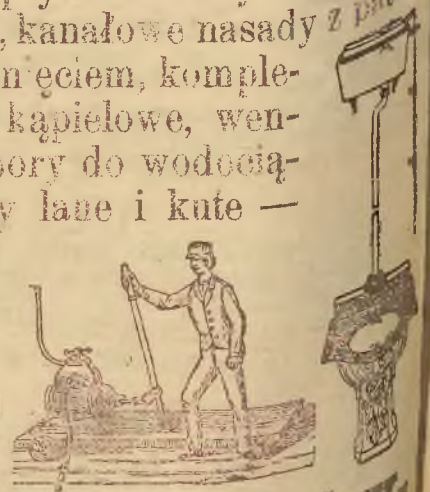 , kanałowe nasady
nięciem, komple-
kąpielowe, wen-
pory do wodocią-
y lane i kute —
z